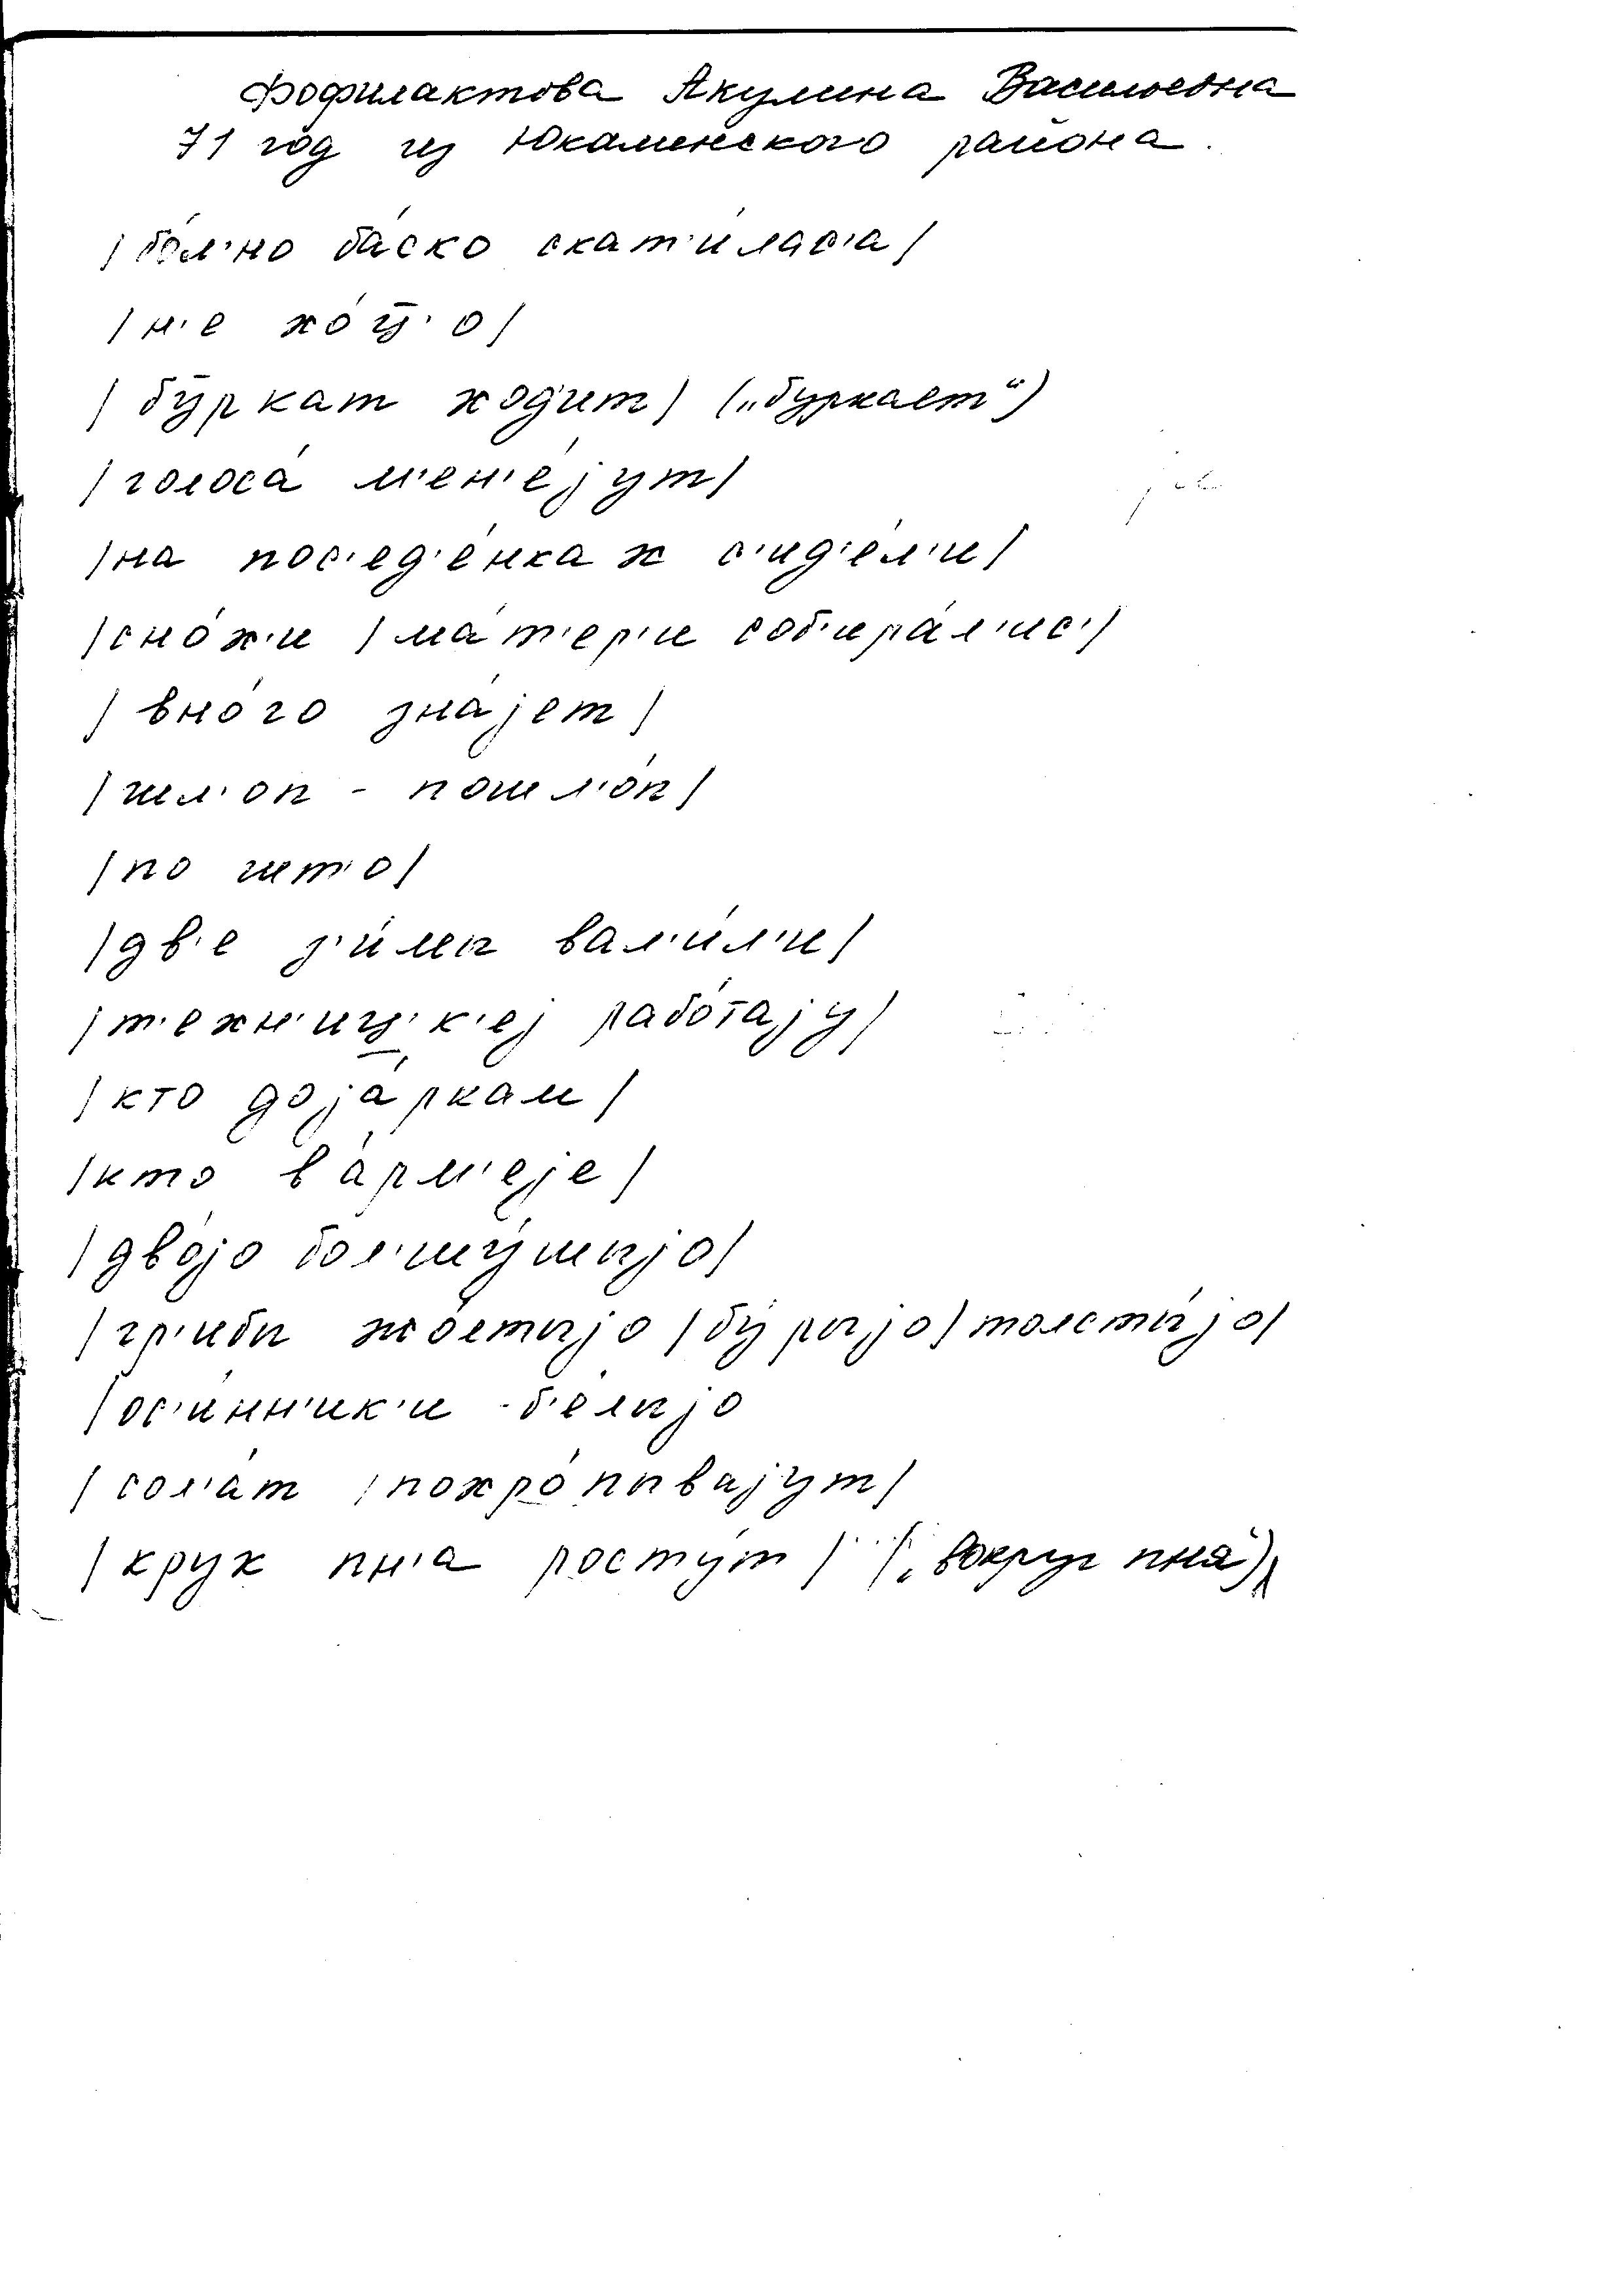 Фофилактова Акулина Васильевна
71 год из Юкаменского района.
/бо́л'но ба́ско скат'и́лас'а/
/н'е хо́ц̅'о/
/бу́ркат ход'ит/ („буркает“)
/голоса́ м'ен'е́јут/
/на пос'ед'е́нках с'ид'е́л'и/
/сно́х'и /ма́т'ер'и соб'ира́л'ис'/
/вно́го зна́јет/
/шл'оп - пошл'о́п/
/по шт'о/
/дв'е з'и́мы вал'и́л'и/
/т'ехн'иц'к'еј рабо́тају/
/кто доја́ркам/
/кто в а́рм'еје/
/дво́јо бол'шу́шыјо/
/гр'ибы жо́лтыјо /бу́рыјо/ толсты́јо/
/ос'и́нн'ик'и - б'е́лыјо
/сол'а́т /похро́пывајут/
/крух пн'аросту́т/ („вокруг пня“)